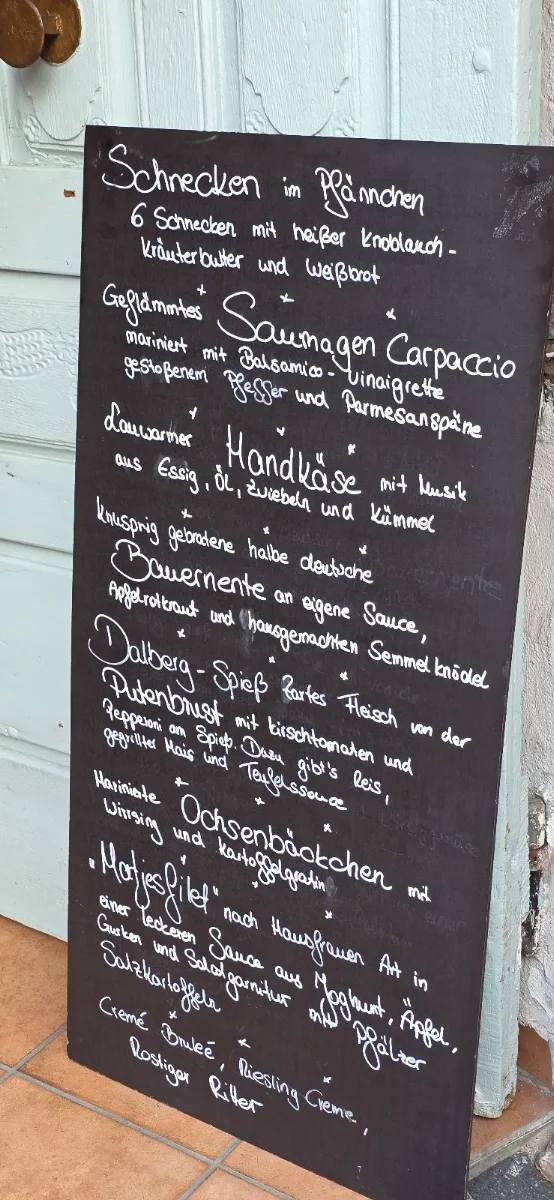 Schnecken im Pfännchen
6 Schnecken mit heißer Knoblauch-
Kräuterbutter und Weißbrot
Geflämmtes Saumagen Carpaccio
mariniert mit Balsamico-Vinaigrette
gestoßenem Pfeffer und Parmesanspäne
Lauwarmer Handkäse mit Musik
aus Essig, Öl, Zwiebeln und Kümmel
Knusprig gebratene halbe deutsche
Bauernente an eigene Sauce,
Apfelrotkraut und hausgemachten Semmelknödel
Dalberg-Spieß Zartes Fleisch von der
Putenbrust mit Kirschtomaten und
Pepperoni am Spieß. Dazu gibt's Reis,
gegrillter Mais und Teufelssauce
Marinierte Ochsenbäckchen mit
Wirsing und Kartoffelgratin
"Matjesfilet" nach Hausfrauen Art in
einer leckeren Sauce aus Joghurt, Äpfel,
Gurken und Salatgarnitur mit Pfälzer
Salzkartoffeln
Cremé Bruleé, Riesling Creme,
Rostiger Ritter